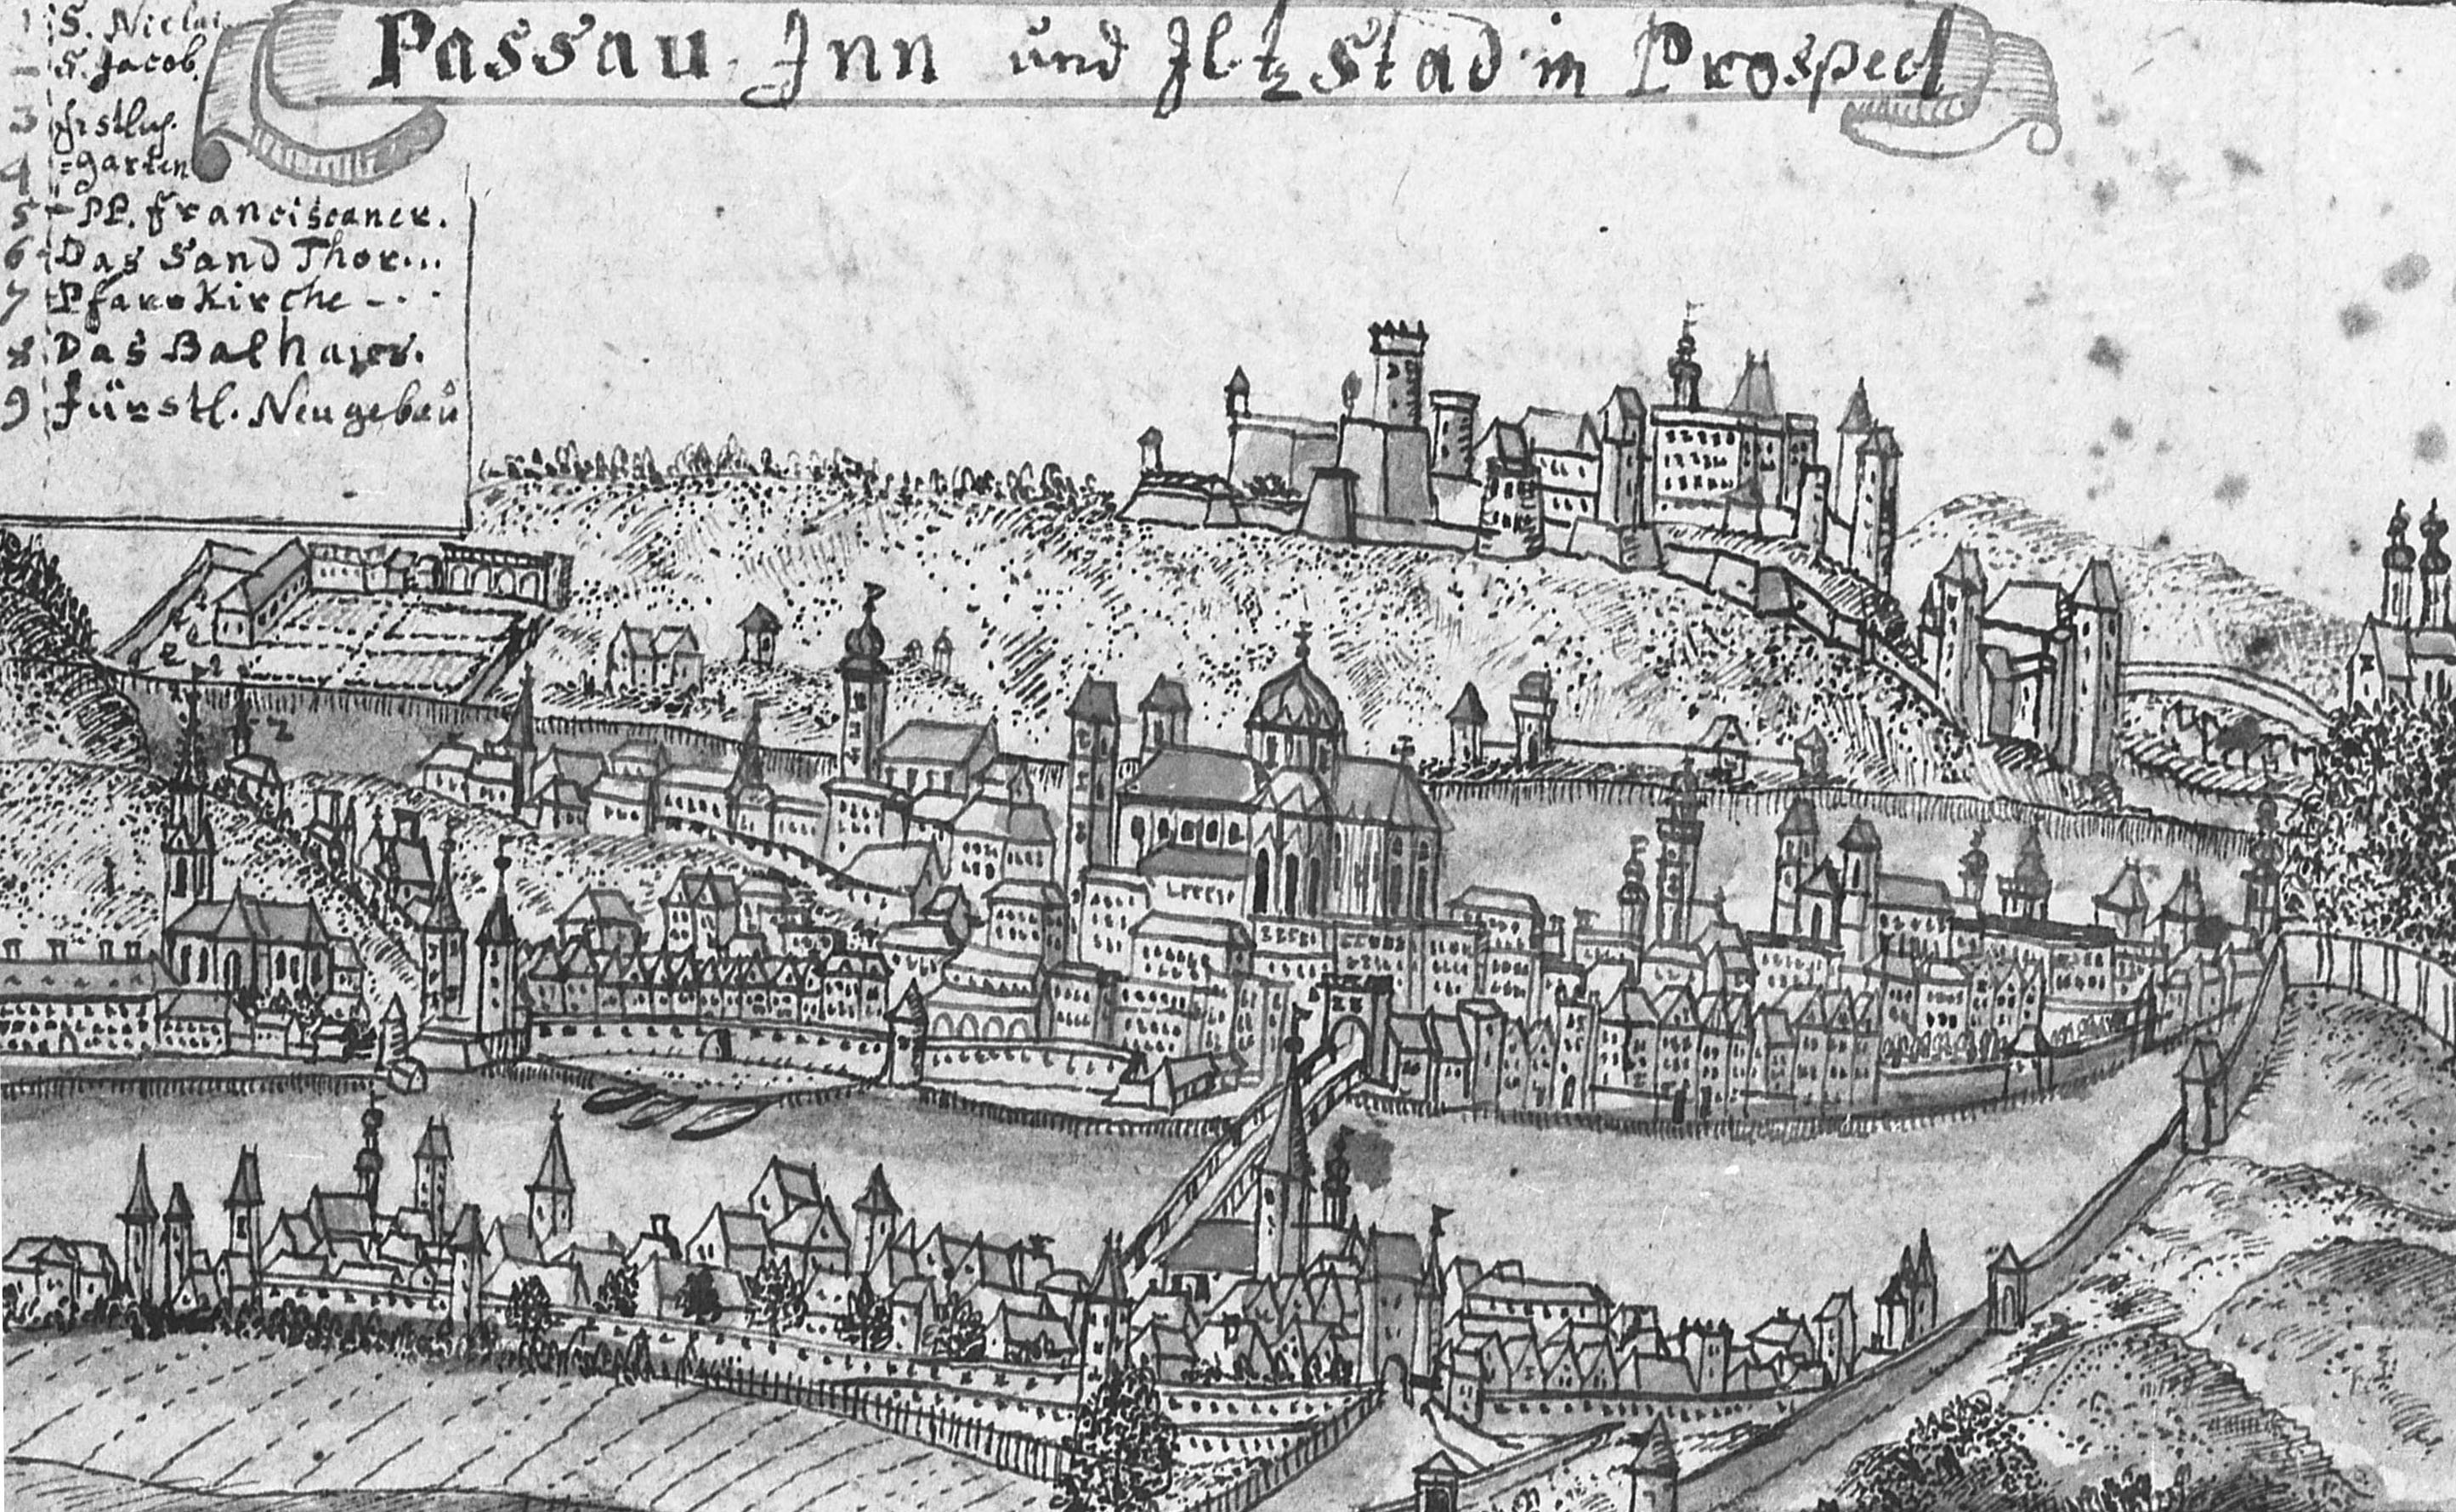 Passau Inn und Iltz Stad in Prospect
1 S. Niclai
2 S. Jacob.
3
4 =garten
5 - PP. Franciscaner.
6 Das Sand Thor...
7 Pfarr Kirche - . .
8 Das Bal haus.
9 Fürstl. Neugebeu